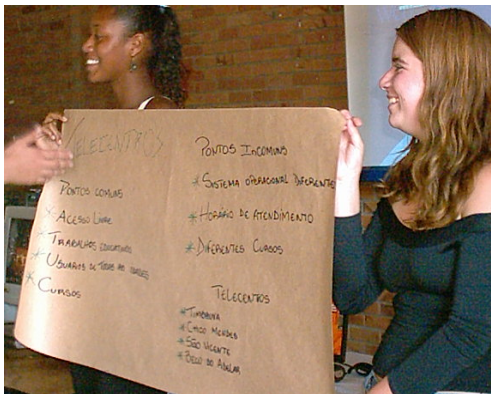 TELECENTROS
PONTOS COMUNS
* ACESSO LIVRE
* TRABALHOS EDUCATIVOS
* USUÁRIOS DE TODAS AS IDADES
* CURSOS
PONTOS INCOMUNS
* SISTEMA OPERACIONAL DIFERENTE
* HORÁRIO DE ATENDIMENTO
* DIFERENTES CURSOS
TELECENTOS
* TIMBAUVA
* CHICO MENDES
* SÃO VICENTE
* BECO DO ADELAR